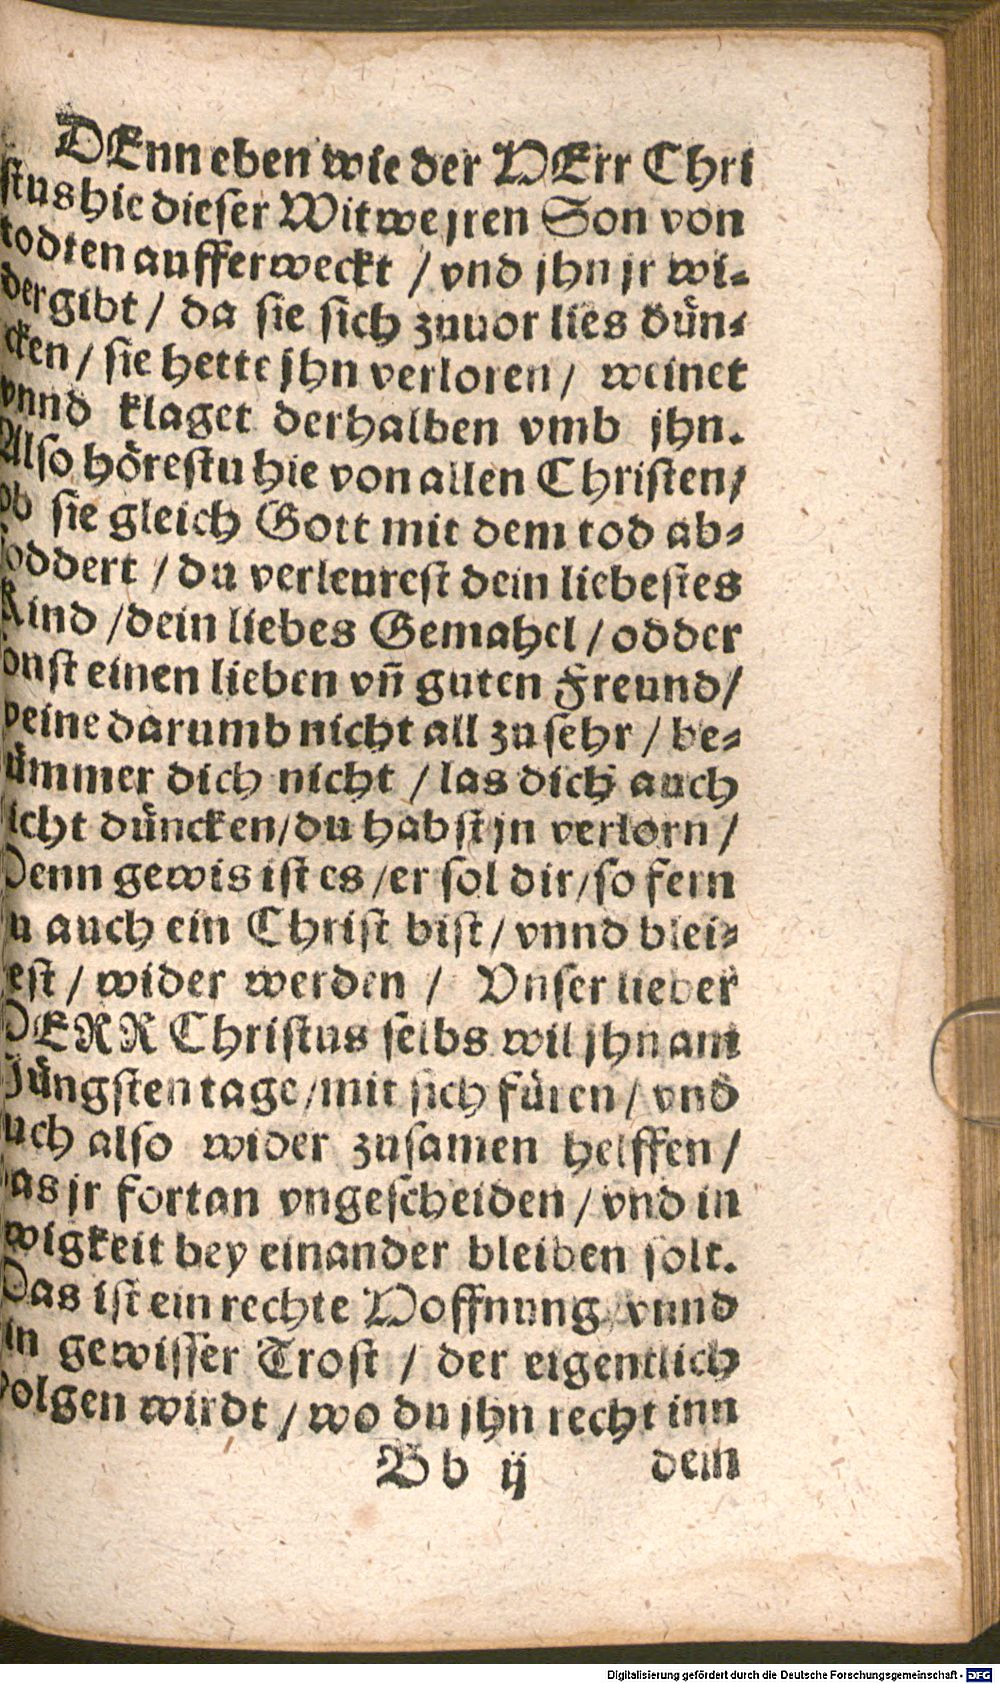 DEnn eben wie der HErr Chri
stus hie dieser Witwe jren Son von
todten aufferweckt / vnd jhn jr wi-
dergibt / da sie sich zuuor lies dün-
cken / sie hette jhn verloren / weinet
vnnd klaget derhalben vmb jhn.
Also hörestu hie von allen Christen /
ob sie gleich Gott mit dem tod ab-
foddert / du verleurest dein liebestes
Kind / dein liebes Gemahel / odder
onst einen lieben vñ guten Freund /
weine darumb nicht all zu sehr / be-
ümmer dich nicht / las dich auch
icht düncken / du habst jn verlorn /
Denn gewis ist es / er sol dir / so fern
u auch ein Christ bist / vnnd blei-
est / wider werden / Vnser lieber
HERR Christus selbs wil jhn am
Jüngsten tage / mit sich füren / vnd
uch also wider zusamen helffen /
as jr fortan vngescheiden / vnd in
wigkeit bey einander bleiben solt.
Das ist ein rechte Hoffnung / vnnd
in gewisser Trost / der eigentlich
volgen wirdt / wo du jhn recht inn
Bb ij dem
Digitalisierung gefördert durch die Deutsche Forschungsgemeinschaft - DFG